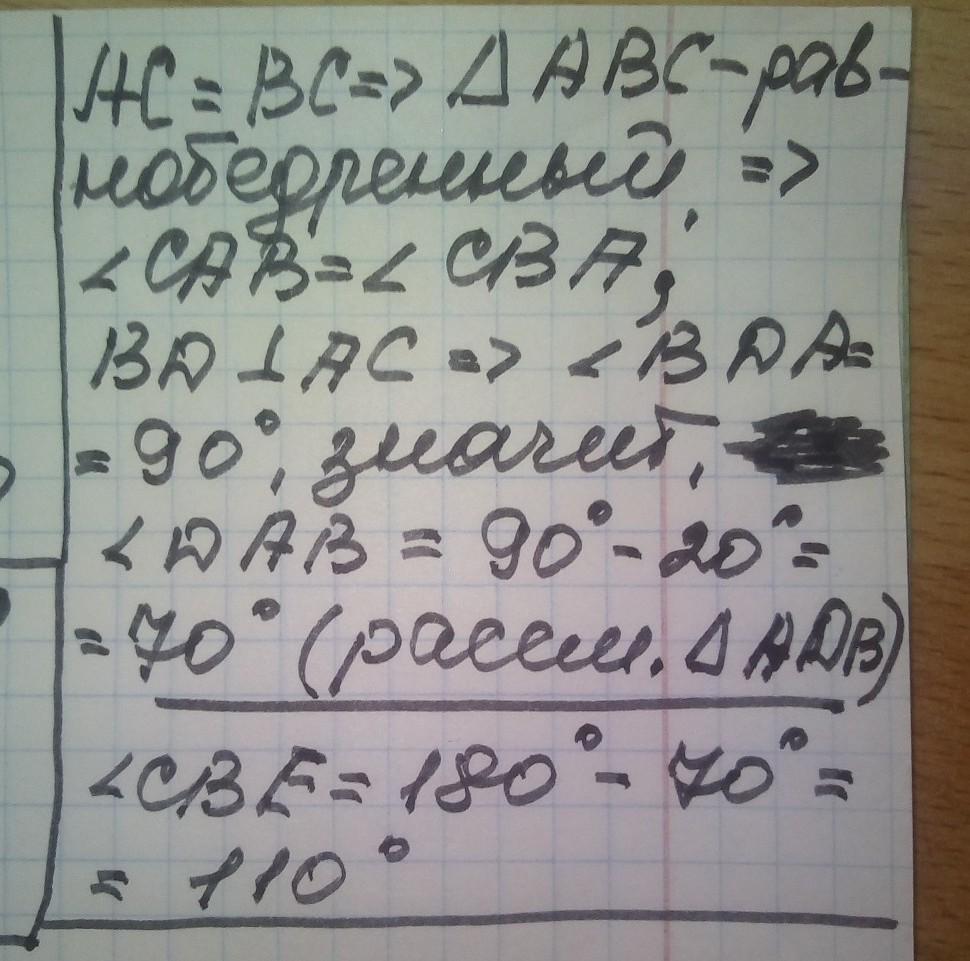 AC = BC => △ABC - рав-
нобедренный, =>
∠CAB = ∠CBA;
BD ⊥ AC => ∠BDA =
= 90°, значит,
∠DAB = 90° - 20° =
= 70° (рассм. △ADB)
∠CBE = 180° - 70° =
= 110°